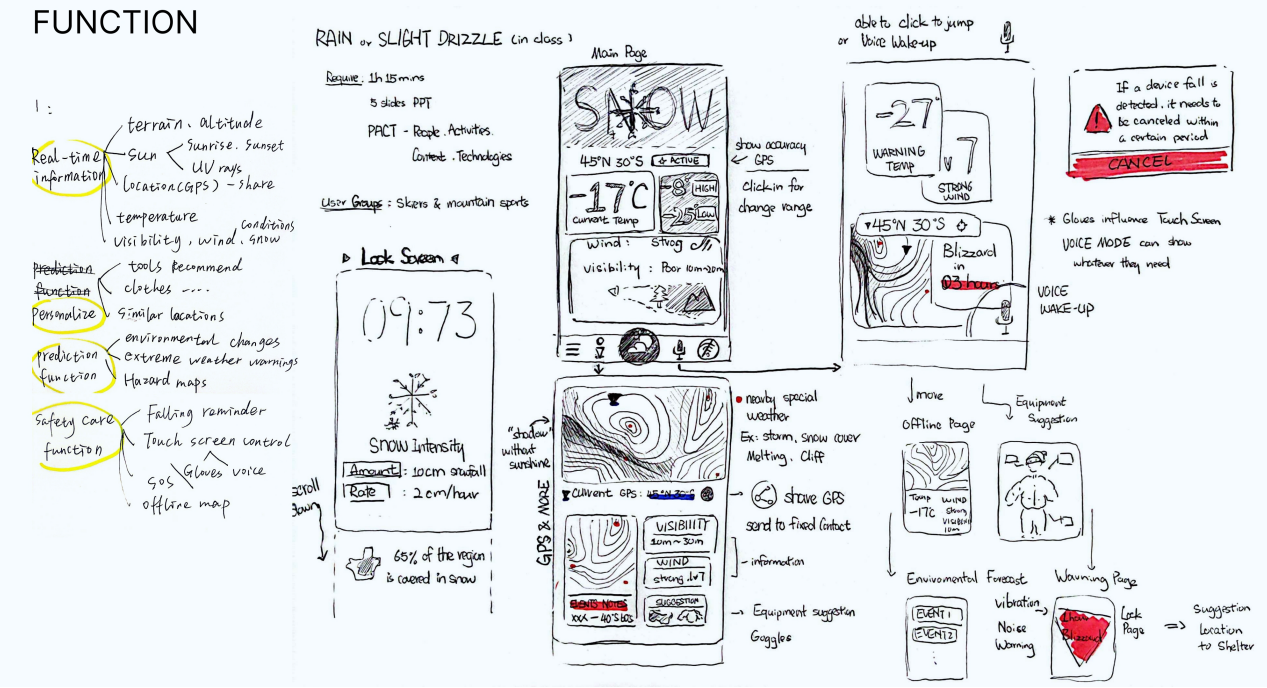 FUNCTION
1:
Real-time
information
terrain, altitude
Sun
Sunrise, Sunset
UV rays
Location(GPS) - share
temperature
visibility, wind, snow
conditions
Prediction
function
Personalize
tools Recommend
clothes ----
Similar locations
prediction
function
environmental changes
extreme weather warnings
Hazard maps
Safety care
function
Falling reminder
Touch screen control
SOS
Gloves voice
offline map
RAIN or SLIGHT DRIZZLE (in class)
Require: 1h 15mins
5 slides PPT
PACT - People. Activities.
Context. Technologies
User Groups: Skiers & mountain sports
Lock Screen
09:73
SNOW Intensity
Amount : 10cm snowfall
Rate : 2cm/hour
scroll
down
65% of the region
is covered in snow
Main Page
SNOW
45°N 30°S
ACTIVE
-17°C
Current Temp
-8° HIGH
-25° LOW
Wind: Strog
Visibility: Poor 10m-20m
show accuracy
GPS
Click in for
change range
"shadow"
without
sunshine
GPS & MORE
Current GPS: 45°N 30°S
VISIBIIITY
10m~30m
WIND
strong .lv7
EVENTS NOTES
SUGGESTION
nearby special
weather
Ex: storm, snow cover
Melting, Cliff
share GPS
send to fixed Contact
information
Equipment suggestion
Goggles
able to click to jump
or Voice Wake-up
-27°
WARNING
TEMP
7
STRONG
WIND
45°N 30°S
Blizzard
in
03 hours
VOICE
WAKE-UP
If a device fall is
detected, it needs to
be canceled within
a certain period
CANCEL
* Gloves influence Touch Screen
VOICE MODE can show
whatever they need
more
Offline Page
Temp
-17C
WIND
Strong
10m
Equipment
Suggestion
Enviromental Forecast
EVENT 1
EVENT 2
Warning Page
vibration
Noise
Warning
1hour
Blizzard
Lock
Page
Suggestion
Location
to Shelter